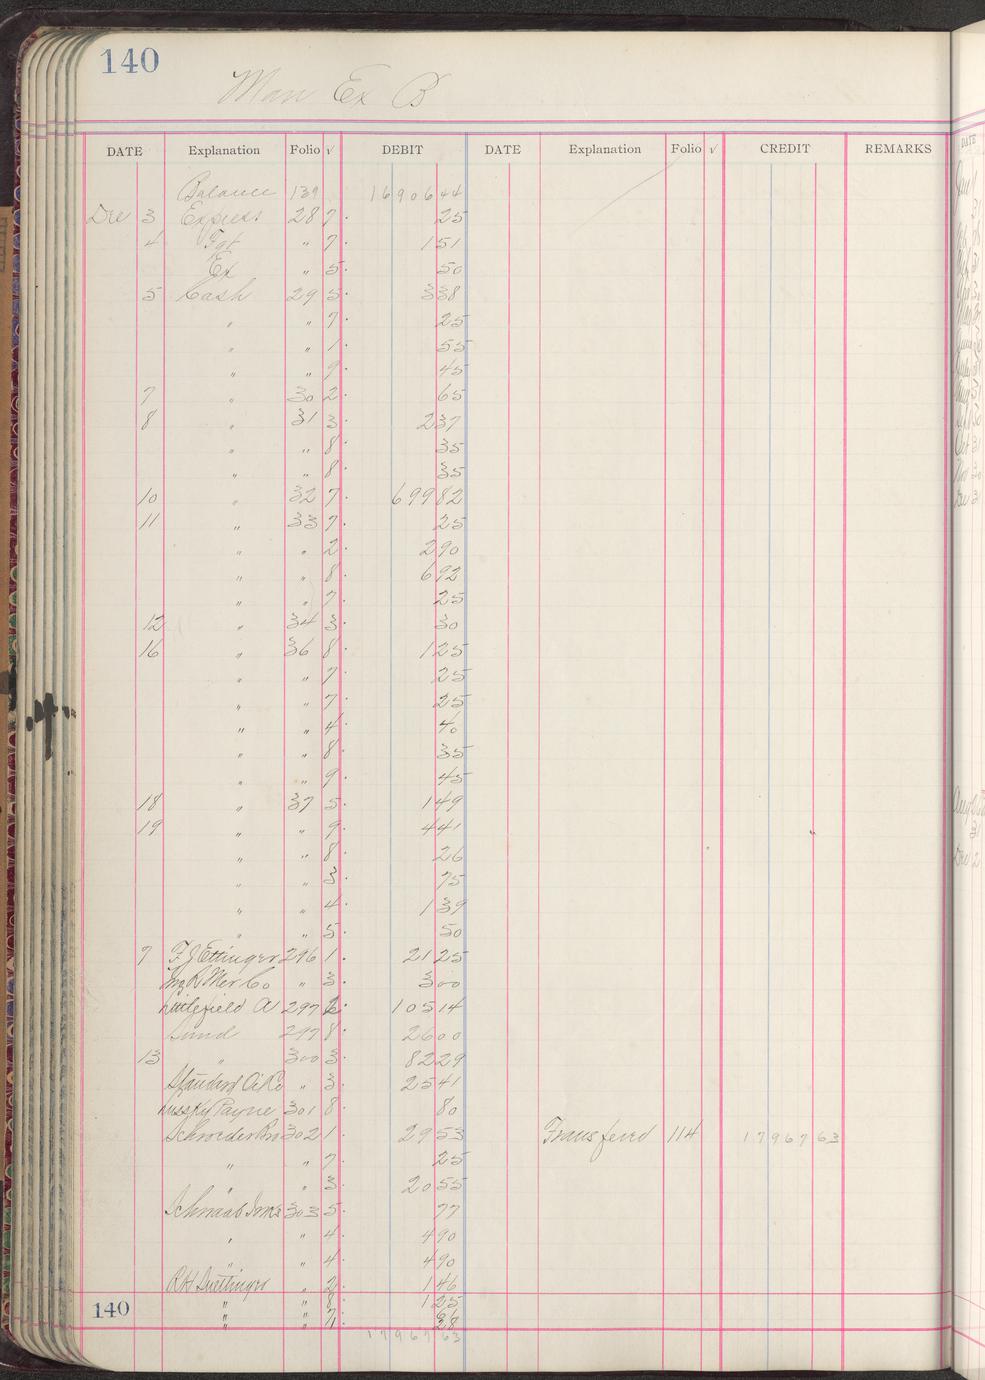 140
Man Ex B
DATE Explanation Folio √ DEBIT DATE Explanation Folio √ CREDIT REMARKS
Balance 139 16906 44
Dec 3 Express 28 7 25
4 Fgt " 7 1 51
Ex " 5 50
5 Cash 29 5 3 38
" " 7 25
" " 1 55
" " 9 45
7 " 30 2 65
8 " 31 3 2 37
" " 8 35
" " 8 35
10 " 32 7 699 82
11 " 33 7 25
" " 2 2 90
" " 8 6 92
" " 7 25
12 " 34 3 30
16 " 36 8 1 25
" " 7 25
" " 7 25
" " 4 40
" " 8 35
" " 9 45
18 " 37 5 1 49
19 " " 9 4 41
" " 8 26
" " 3 75
" " 4 1 39
" " 5 50
7 F J Ettinger 296 1 21 25
R Mer Co " 3 3 00
Littlefield A 297 105 14
Sund 297 8 26 00
13 " 300 3 82 29
Standard Oil Co " 3 25 41
Payne 301 8 80
Schroeder Bro 302 1 29 53 Transferred 114 17967 63
" " 7 25
" " 3 20 55
Schwaab 303 5 77
" " 4 4 90
" " 4 4 90
R H " 2 1 46
140 " " 8 1 25
" " 28
17967 63